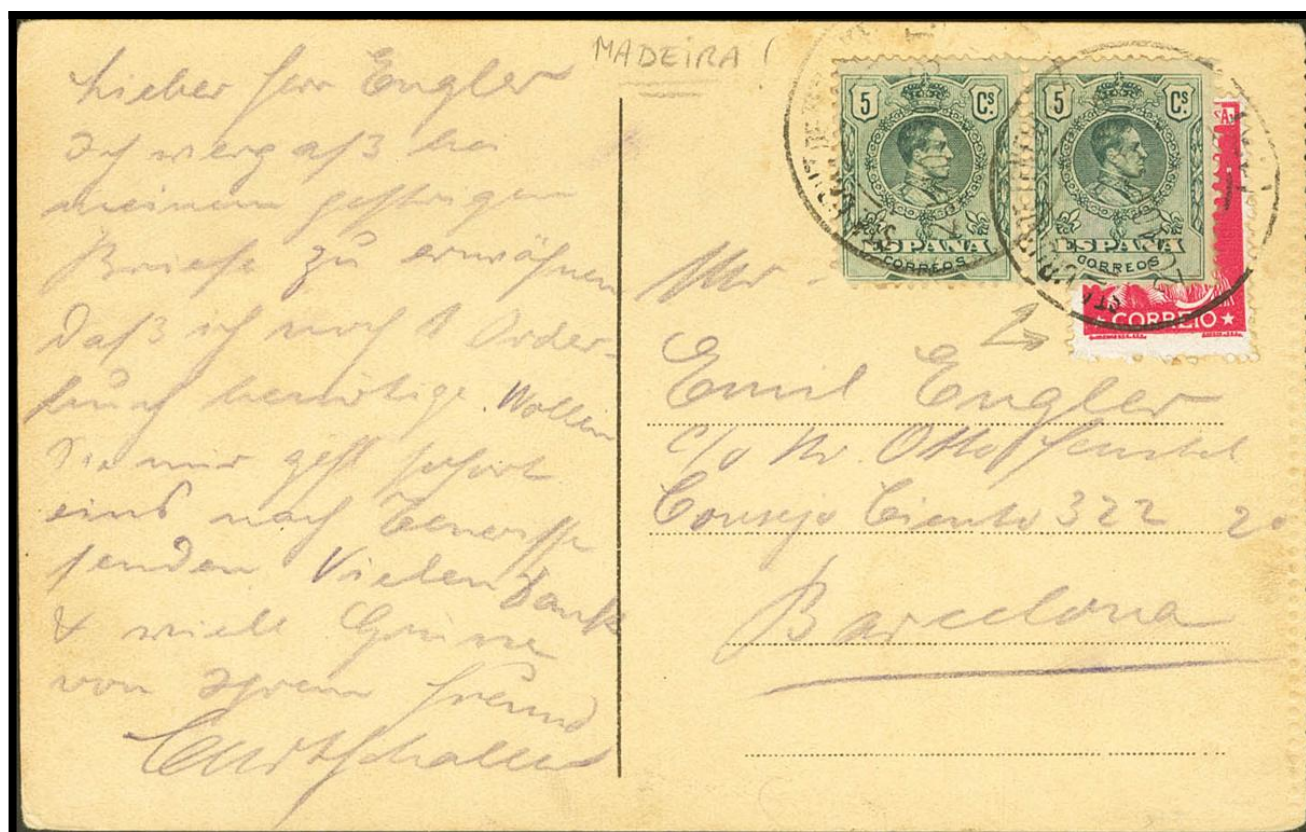 MADEIRA
Lieber Herr Engler
Ich vergaß bei
meinem gestrigen
Briefe zu erwähnen
daß ich noch 1 Order-
buch benötige. Wollen
Sie mir gefl sofort
eins nach Teneriffe
senden Vielen Dank
& viele Grüsse
von Ihrem Freund
5 Cs.
ESPAÑA
CORREOS
5 Cs.
ESPAÑA
CORREOS
CORREIO
Mr.
Emil Engler
c/o Mr. Otto
Consejo Ciento 322 2º
Barcelona